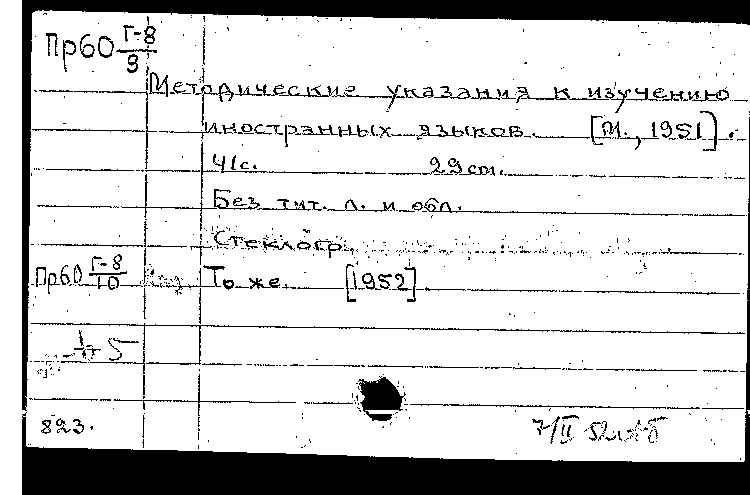 Пр60 Г-8/9
Методические указания к изучению
иностранных языков. [М., 1951].
41с. 29см.
Без тит. л. и обл.
Стеклогр.
Пр60 Г-8/10 То же. [1952].
5
823. 7/II 52